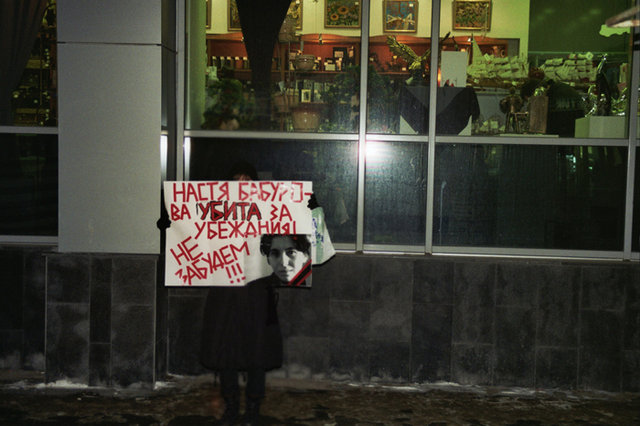 НАСТЯ БАБУРО-
ВА УБИТА ЗА
УБЕЖДАНИЯ!
НЕ
ЗАБУДЕМ
!!!